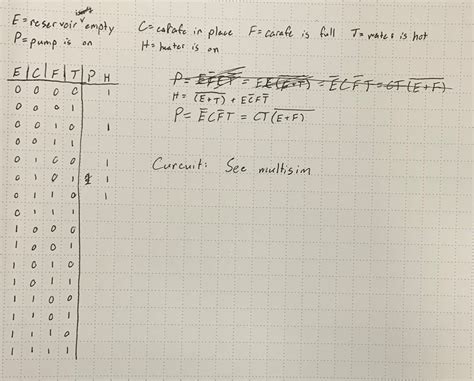 E = reservoir empty C = carafe in place F = carafe is full T = water is hot
P = pump is on H = heater is on
E C F T P H
0 0 0 0 1
0 0 0 1
0 0 1 0 1
0 0 1 1
0 1 0 0 1
0 1 0 1 1 1
0 1 1 0 1
0 1 1 1
1 0 0 0
1 0 0 1
1 0 1 0
1 0 1 1
1 1 0 0
1 1 0 1
1 1 1 0
1 1 1 1
P = = E̅CF̅T = CT(E+F)̅
H = (E+T)̅ + E̅CF̅T
P = E̅CF̅T = CT(E+F)̅
Curcuit: See multisim